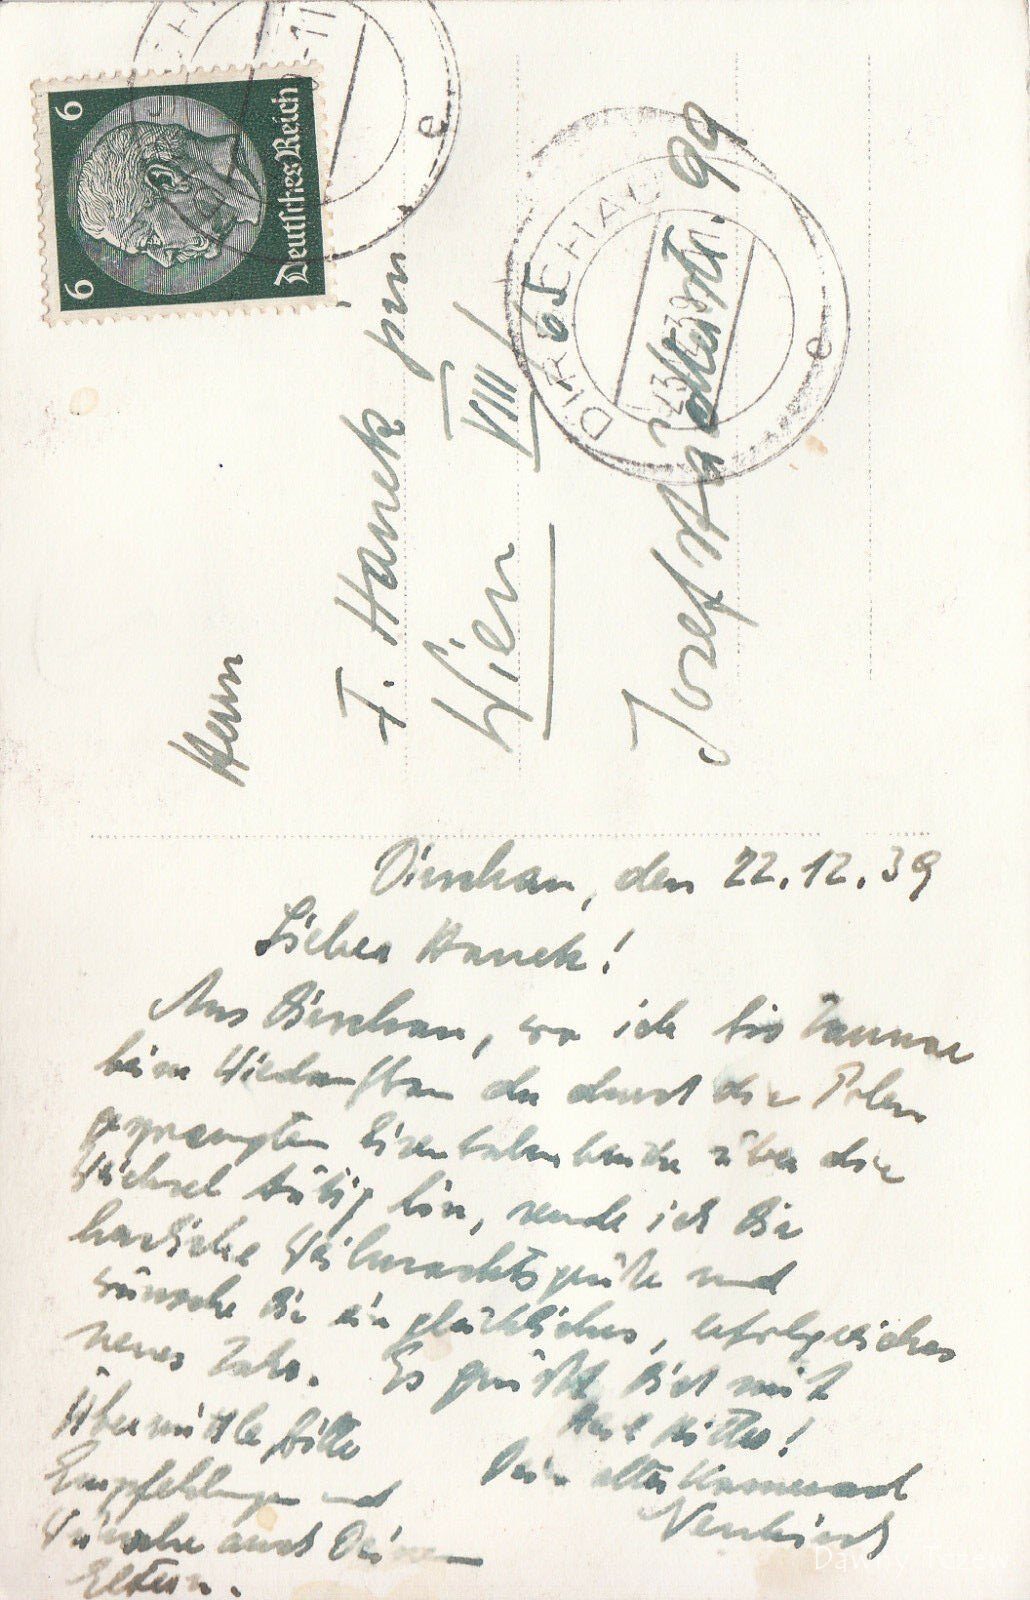 6
6
Deutsches Reich
DIRSCHAU
e
e
Herrn
F. Hanek jun
Wien VIII/65
Josefstädterstr. 99
Dirschau, den 22.12.39
Lieber Hanek!
Aus Dirschau, wo ich bis Januar
beim Wiederaufbau der durch die Polen
gesprengten Eisenbahnbrücke über die
Weichsel tätig bin, sende ich Dir
herzliche Weihnachtsgrüße und
wünsche Dir ein glückliches, erfolgreiches
neues Jahr. Es grüßt Dich mit
Heil Hitler!
Dein alter Kamerad
Übermittle bitte
Empfehlungen und
Wünsche auch Deinen
Eltern.